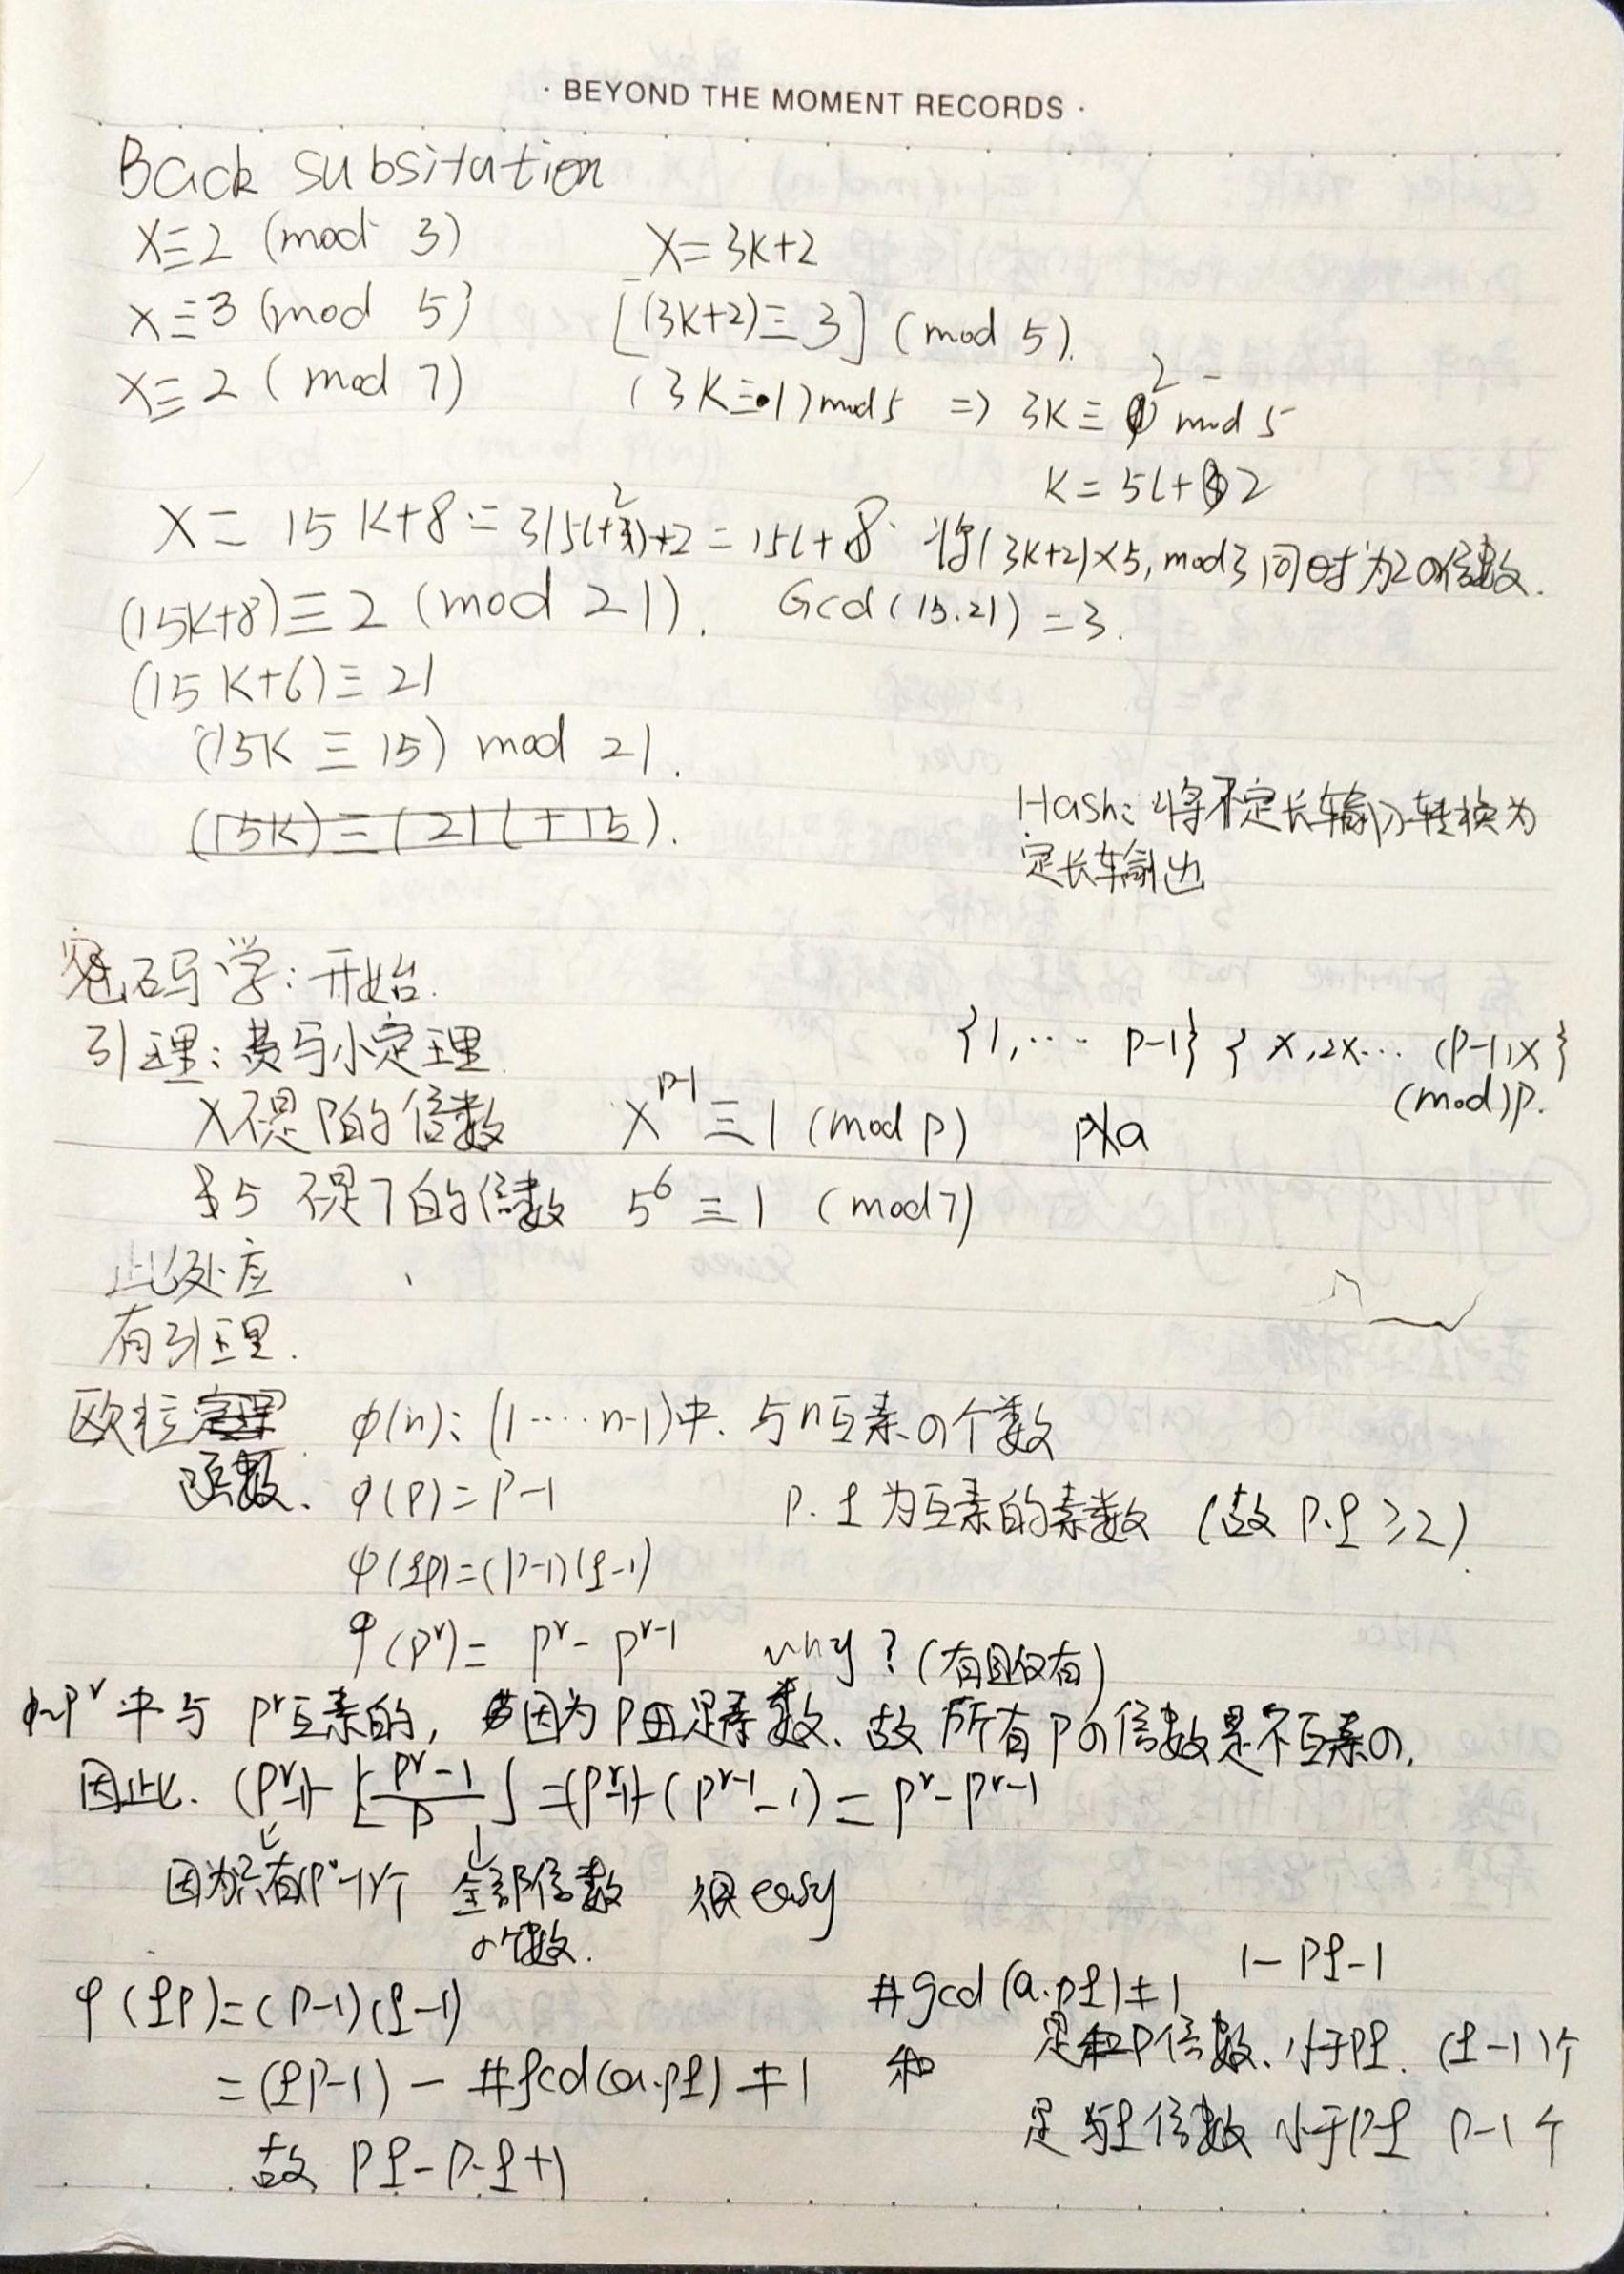 · BEYOND THE MOMENT RECORDS ·
Back subsitution
x≡2 (mod 3) x=3k+2
x≡3 (mod 5) [(3k+2)≡3] (mod 5).
x≡2 (mod 7) (3k≡1) mod 5 => 3k≡ mod 5
k=5l+2
x= 15k+8 = 3(5l+2)+2 = 15l+8 将(3k+2)×5, mod3同时为2の倍数.
(15k+8)≡2 (mod 21). Gcd(15.21)=3.
(15k+6)≡21
(15k≡15) mod 21.
(15k)≡(21l+15).
Hash: 将不定长输入转换为
定长输出
密码学:开始.
引理:费马小定理 {1,… p-1} {x,2x… (p-1)x}
(mod)p.
x不是p的倍数 x^{p-1}≡1 (mod p) p∤a
5 不是7的倍数 5⁶≡1 (mod7)
此处应
有引理.
欧拉定理 φ(n): (1····n-1)中. 与n互素の个数
函数. φ(p)=p-1 p.q为互素的素数 (故 p.q≥2)
φ(qp)=(p-1)(q-1)
φ(p^r)= p^r-p^{r-1} why?(有且仅有)
1~p^r中与 p^r互素的, 因为p是素数、故 所有pの倍数是不互素の,
因此. (p^r-1)-⌊(p^r-1)/p⌋=(p^r-1)-(p^{r-1}-1)=p^r-p^{r-1}
因为只有(p^r-1)个 全部倍数 很easy
の个数.
φ(qp)=(p-1)(q-1) #gcd(a.pq)≠1 1-pq-1
=(qp-1)-#gcd(a.pq)≠1 和 是p倍数、小于pq. (q-1)个
故 pq-p-q+1 是q倍数 小于pq p-1个